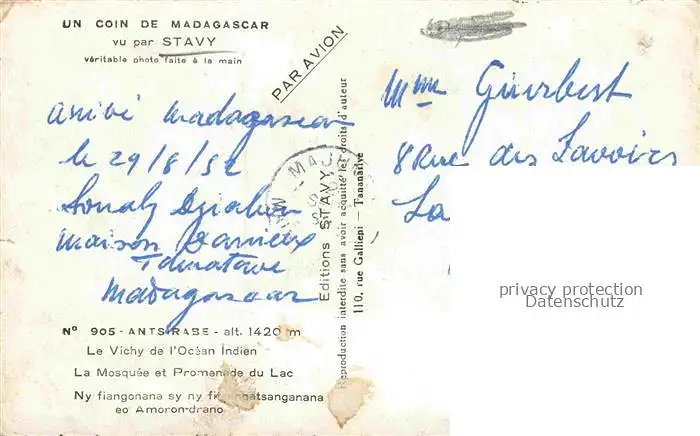 UN COIN DE MADAGASCAR
vu par STAVY
véritable photo faite à la main
PAR AVION
arrivé Madagascar
le 29/8/52
Maison
Tamatave
Madagascar
Nº 905 - ANTSIRABE - alt. 1420 m
Le Vichy de l'Océan Indien
La Mosquée et Promenade du Lac
Ny fiangonana sy ny
eo Amoron-drano
Editions STAVY
110, rue Gallieni - Tananarive
Reproduction interdite sans avoir acquitté les droits d'auteur
Mme
8 Rue des Lavoirs
La
privacy protection
Datenschutz